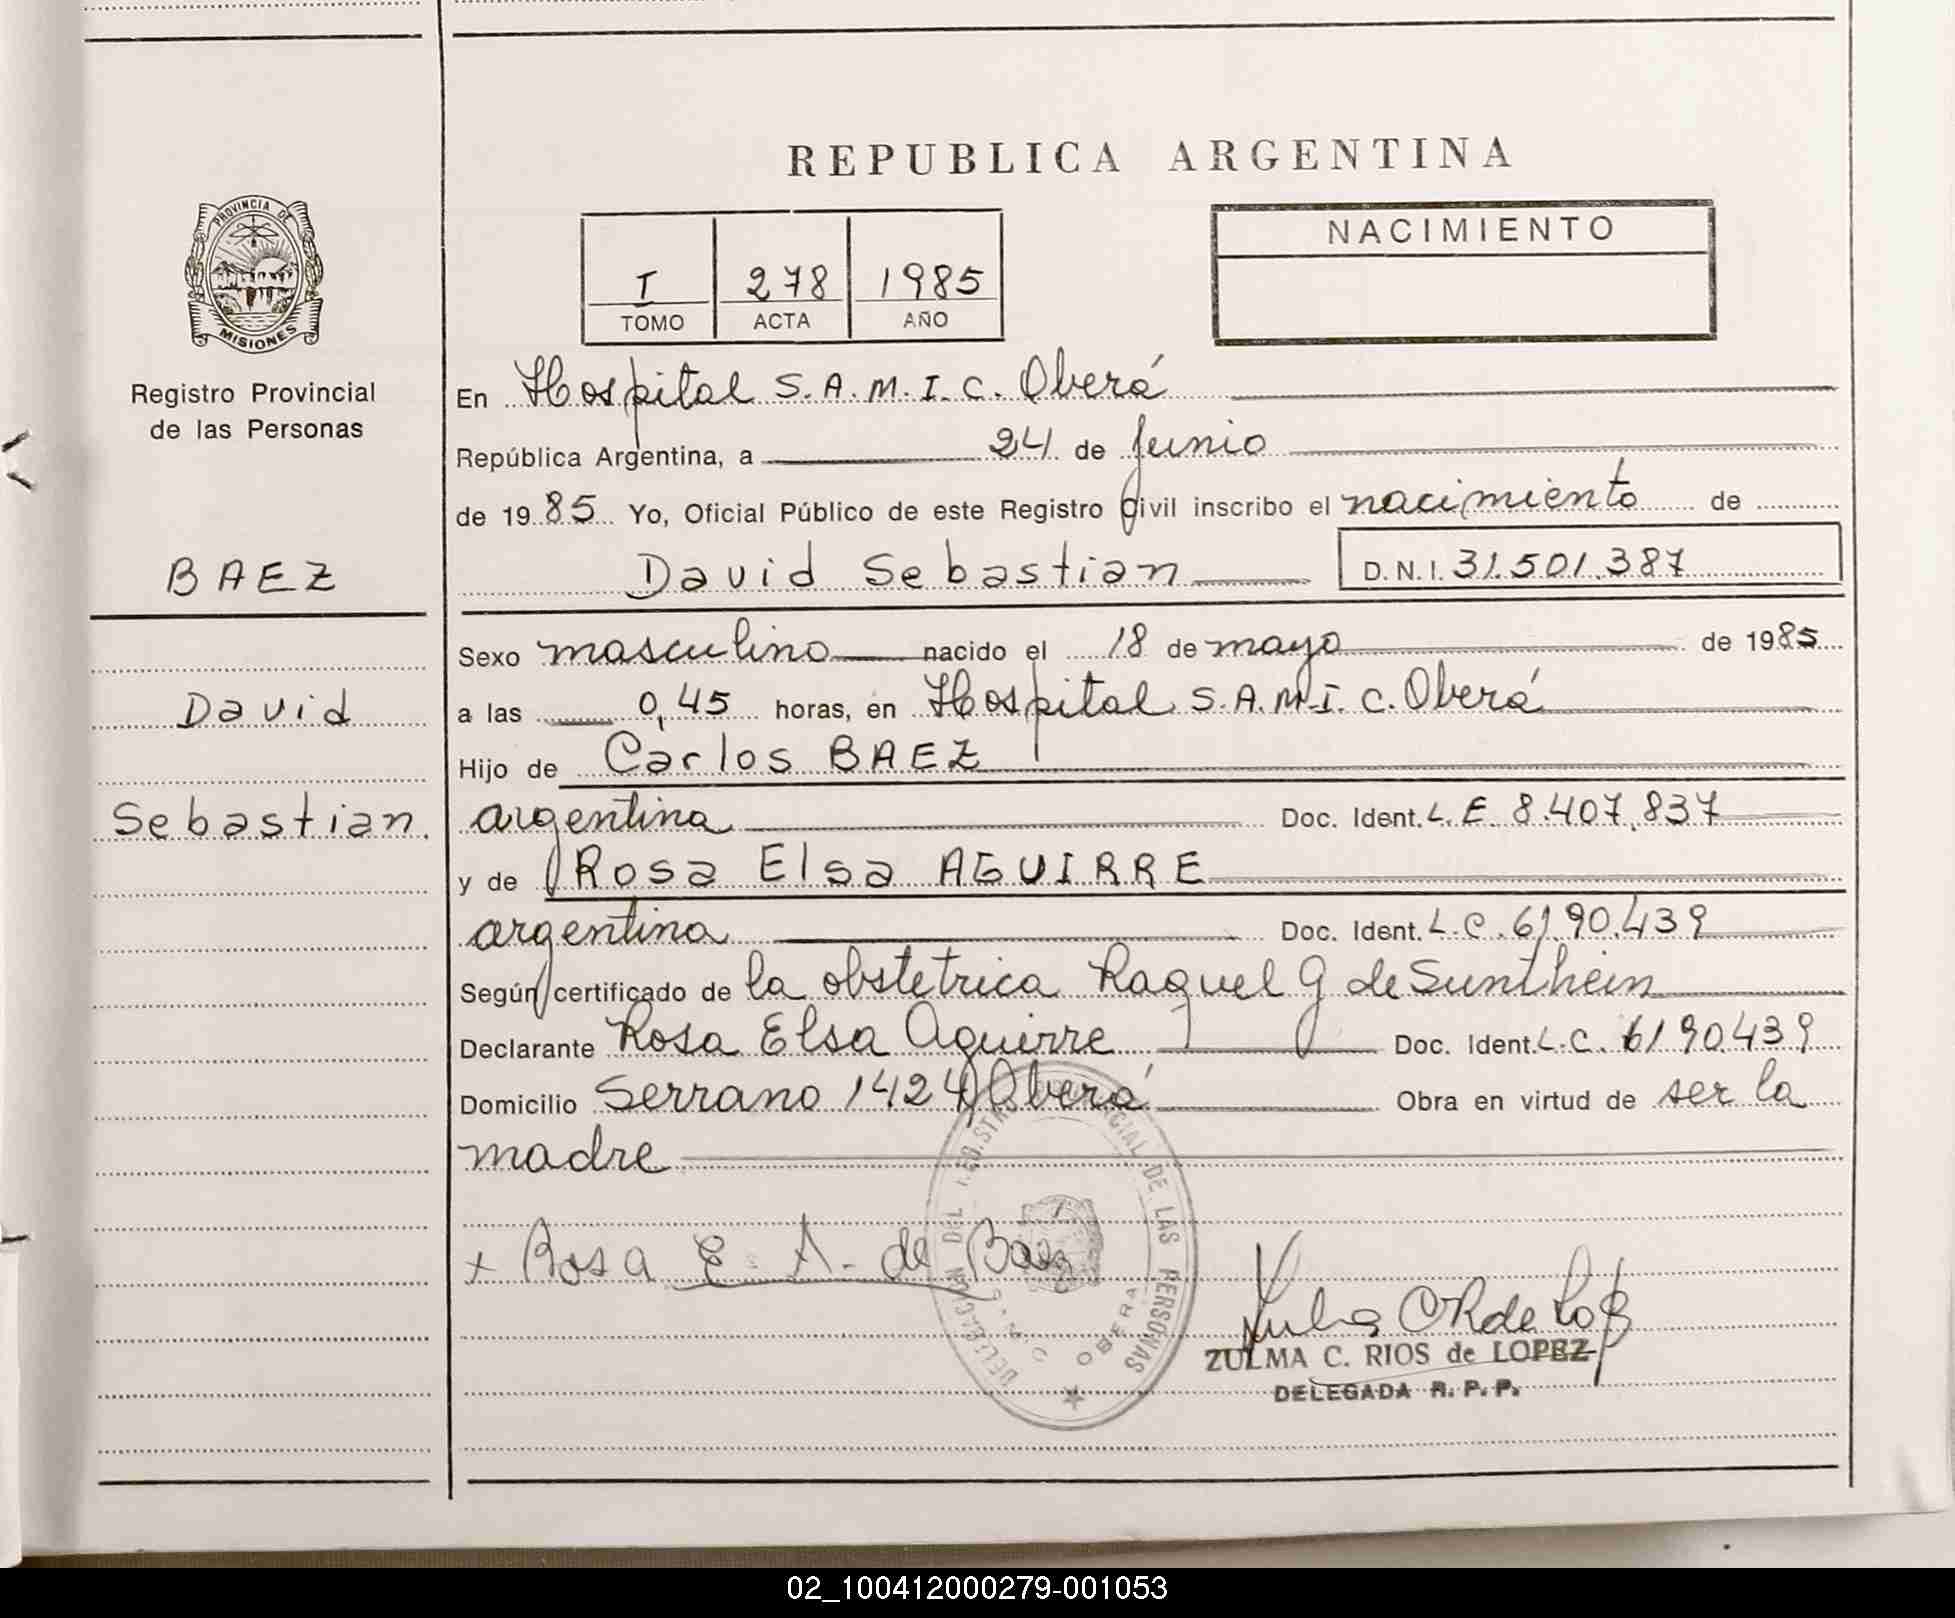 REPUBLICA ARGENTINA
PROVINCIA DE
MISIONES
NACIMIENTO
I 278 1985
TOMO ACTA AÑO
Registro Provincial
de las Personas
BAEZ
David
Sebastian.
En Hospital S.A.M.I.C. Oberá
República Argentina, a 24 de Junio
de 1985 Yo, Oficial Público de este Registro Civil inscribo el nacimiento de
David Sebastian D.N.I. 31.501.387
Sexo masculino nacido el 18 de mayo de 1985
a las 0,45 horas, en Hospital S.A.M.I.C. Oberá
Hijo de Carlos BAEZ
argentina Doc. Ident. L.E. 8.407.837
y de Rosa Elsa AGUIRRE
argentina Doc. Ident. L.C. 6190.439
Según certificado de la obstetrica Raquel G de Sunthein
Declarante Rosa Elsa Aguirre Doc. Ident. L.C. 6190439
Domicilio Serrano 1424 Oberá Obra en virtud de ser la
madre
DELEGACION DEL REGISTRO PROVINCIAL DE LAS PERSONAS
OBERA
x Rosa E. A. de Baez
ZULMA C. RIOS de LOPEZ
DELEGADA R. P. P.
02_100412000279-001053